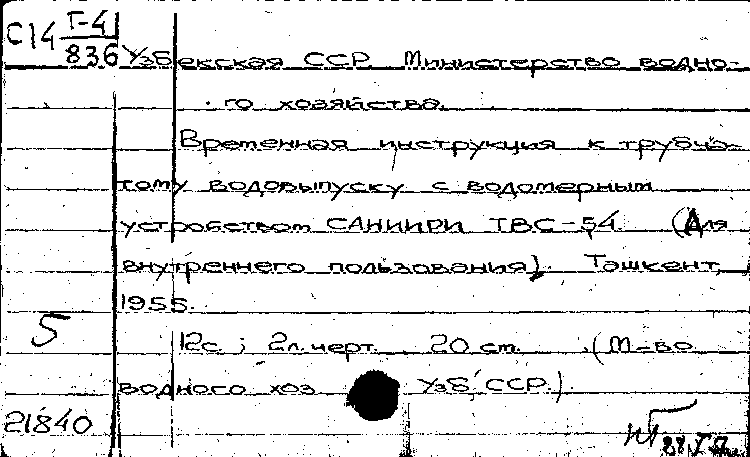 С14 Г-41
836 Узбекская ССР. Министерство водно-
го хозяйства.
Временная инструкция к трубча-
тому водовыпуску с водомерным
устройством САНИИРИ ТВС-54. (Для
внутреннего пользования). Ташкент,
1955.
5
12с.; 2л.черт. 20 ст. (М-во
водного хоз. Узб. ССР.)
21840